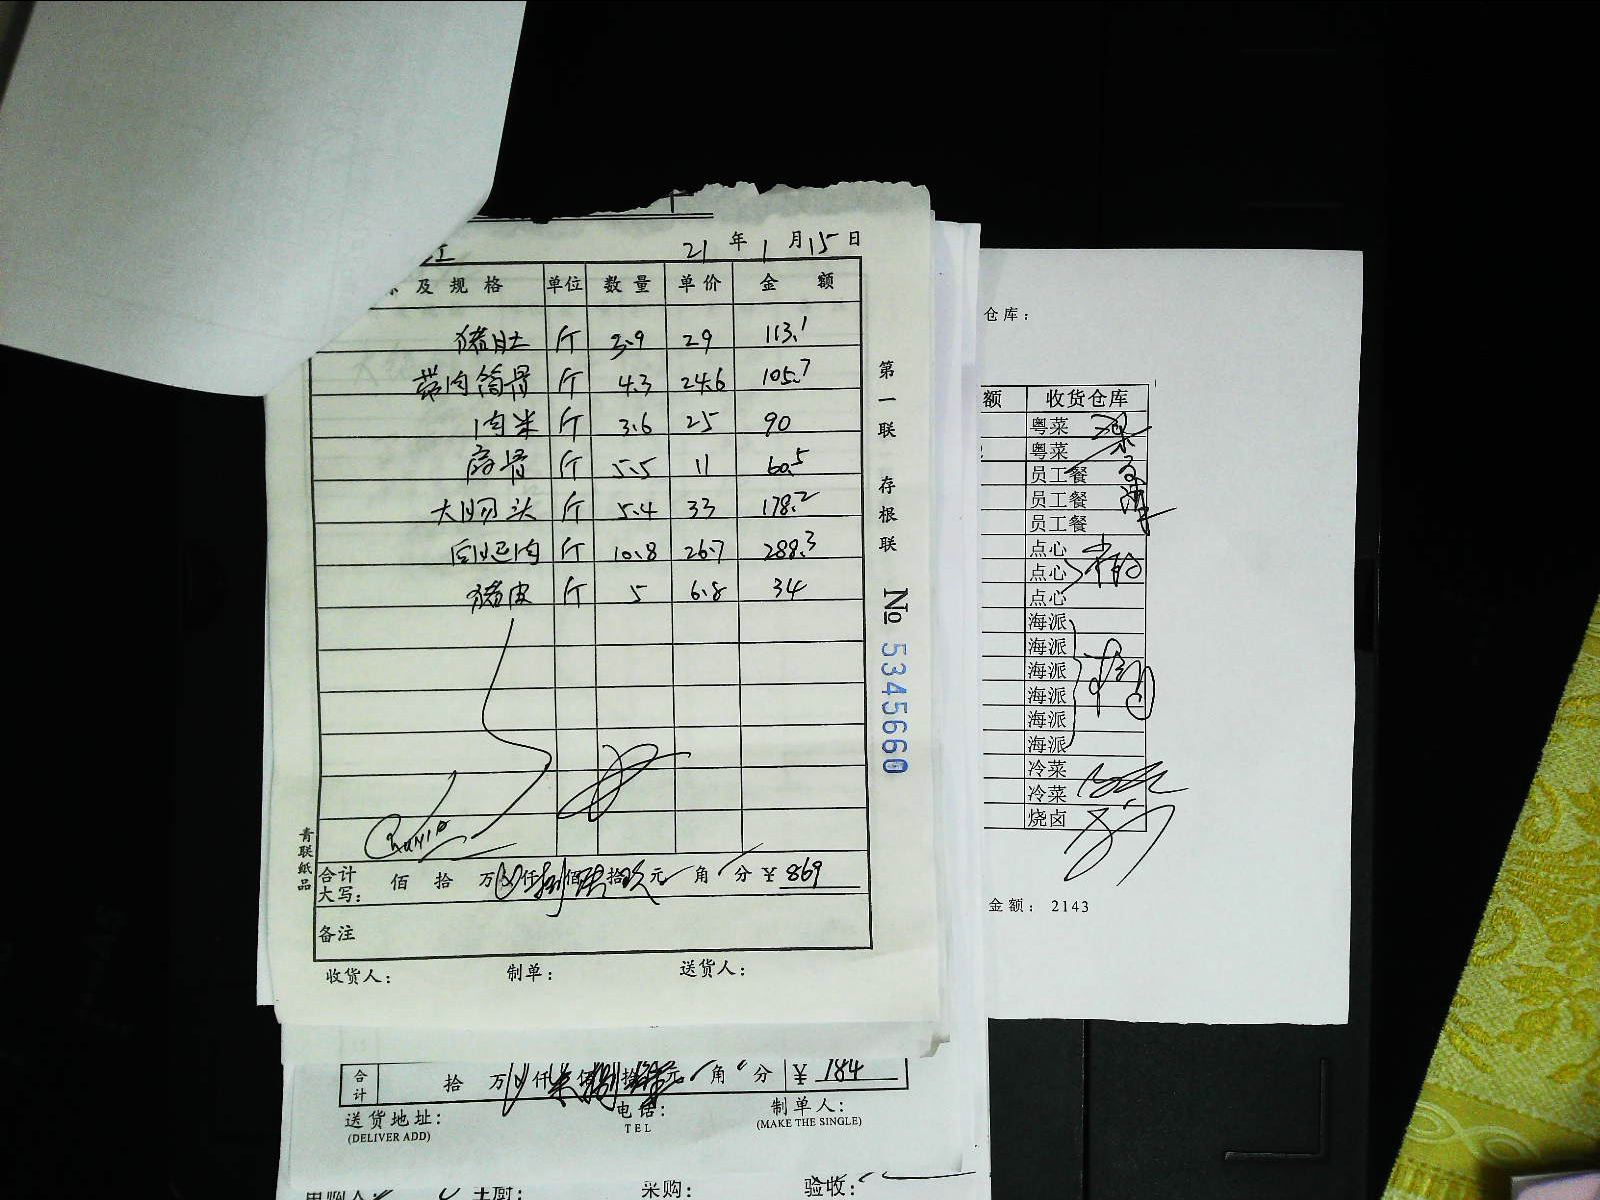 21 年 1 月 15 日
及 规 格 单位 数 量 单 价 金 额
猪肚 斤 3.9 29 113.1
带肉筒骨 斤 4.3 24.6 105.7
肉米 斤 3.6 25 90
斤 5.5 11 60.5
大肠头 斤 5.4 33 178.2
后腿肉 斤 10.8 26.7 288.3
猪皮 斤 5 6.8 34
合计
大写: 佰 拾 万 仟捌佰陆拾玖元 角 分 ¥ 869
备注
收货人: 制单: 送货人:
青联纸品
第一联 存根联
No 5345660
合计 拾 万 仟 佰 拾 元 角 分 ¥ 184
送 货 地 址: 电 话: 制 单 人:
(DELIVER ADD) TEL (MAKE THE SINGLE)
主厨: 采购: 验收:
仓库:
额 收货仓库
粤菜
粤菜
员工餐
员工餐
员工餐
点心
点心
点心
海派
海派
海派
海派
海派
海派
冷菜
冷菜
烧卤
金额: 2143